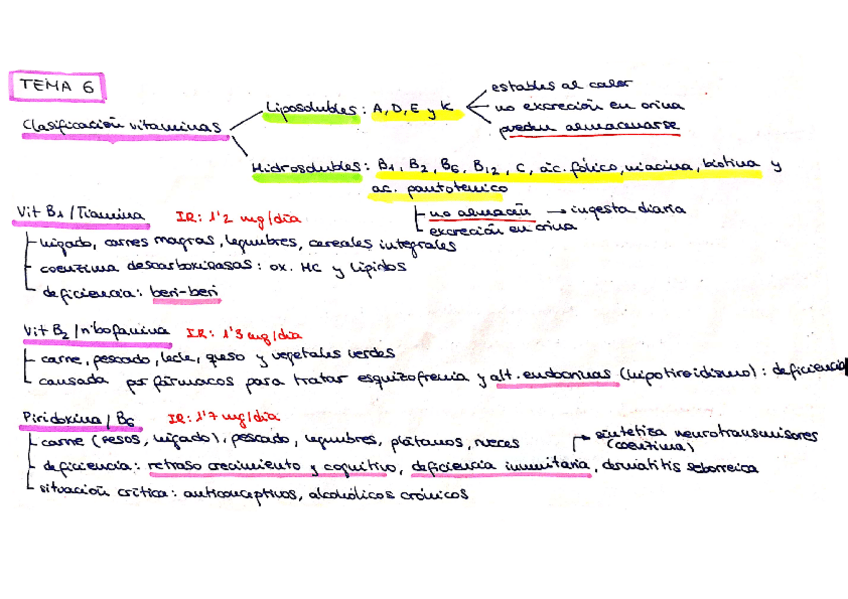 TEMA 6
Clasificación vitaminas
Liposolubles: A, D, E y K
estables al calor
no excreción en orina
pueden almacenarse
Hidrosolubles: B1, B2, B6, B12, C, ác. fólico, niacina, biotina y
ac. pantotenico
no almacén → ingesta diaria
excreción en orina
Vit B1 / Tiamina IR: 1'2 mg/día
hígado, carnes magras, legumbres, cereales integrales
coenzima descarboxilasas: ox. HC y lípidos
deficiencia: beri-beri
Vit B2 / riboflavina IR: 1'3 mg/día
carne, pescado, leche, queso y vegetales verdes
causada por fármacos para tratar esquizofrenia y alt. endocrinas (hipotiroidismo): deficiencia
Piridoxina / B6 IR: 1'7 mg/día
carne (sesos, hígado), pescado, legumbres, plátanos, nueces
sintetiza neurotransmisores
(coenzima)
deficiencia: retraso crecimiento y cognitivo, deficiencia inmunitaria, dermatitis seborreica
situación crítica: anticonceptivos, alcohólicos crónicos